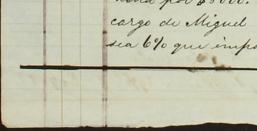 por $5000.
cargo de Miguel
sea 6% que impo